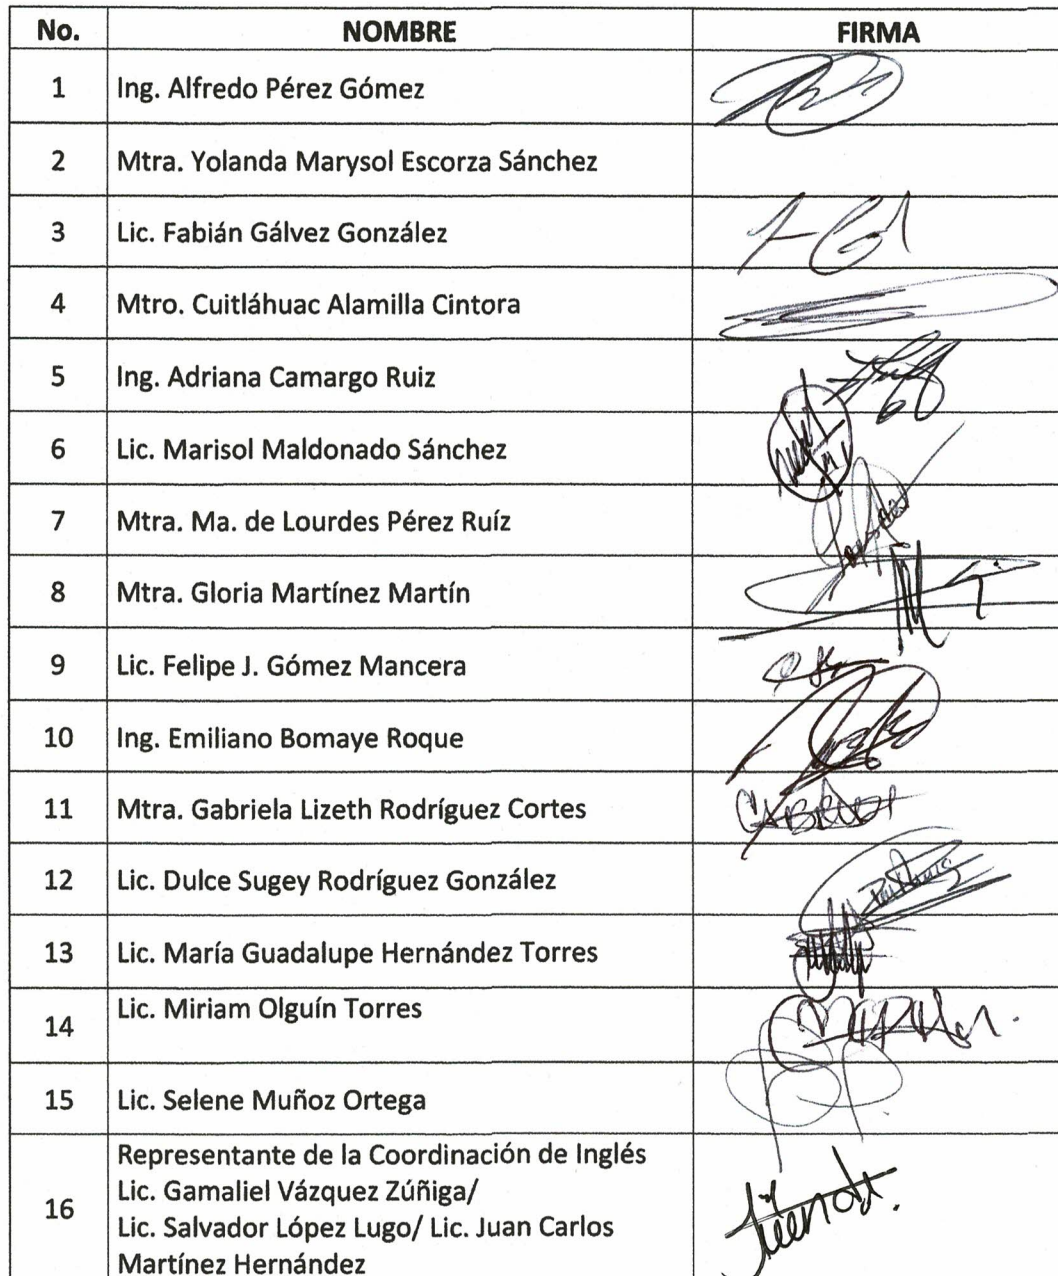 No. NOMBRE FIRMA
1 Ing. Alfredo Pérez Gómez
2 Mtra. Yolanda Marysol Escorza Sánchez
3 Lic. Fabián Gálvez González
4 Mtro. Cuitláhuac Alamilla Cintora
5 Ing. Adriana Camargo Ruiz
6 Lic. Marisol Maldonado Sánchez
7 Mtra. Ma. de Lourdes Pérez Ruíz
8 Mtra. Gloria Martínez Martín
9 Lic. Felipe J. Gómez Mancera
10 Ing. Emiliano Bomaye Roque
11 Mtra. Gabriela Lizeth Rodríguez Cortes
12 Lic. Dulce Sugey Rodríguez González
13 Lic. María Guadalupe Hernández Torres
14 Lic. Miriam Olguín Torres
15 Lic. Selene Muñoz Ortega
16 Representante de la Coordinación de Inglés
Lic. Gamaliel Vázquez Zúñiga/
Lic. Salvador López Lugo/ Lic. Juan Carlos
Martínez Hernández